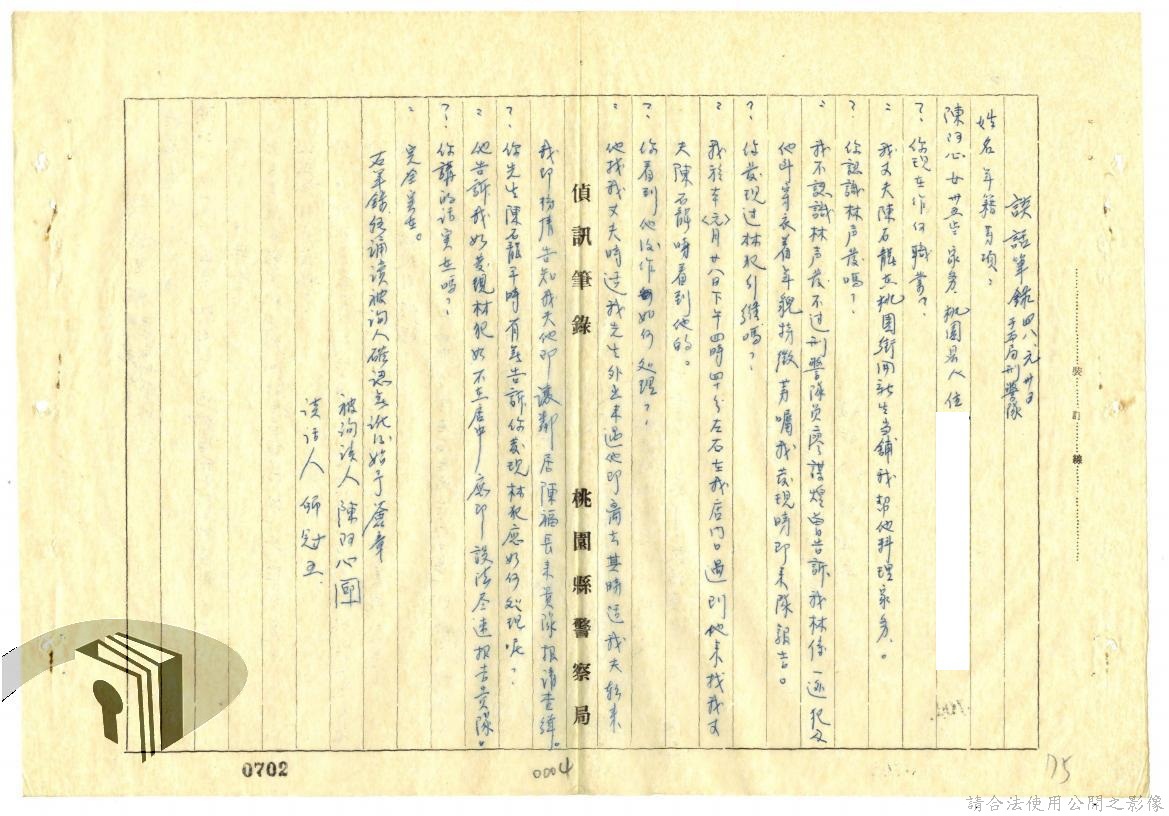 談話筆錄 四八、元、卅日
于本局刑警隊
姓名年籍等項?
陳阿心女卅五歲家務桃園县人住
?你现在作何職業?
:我丈夫陳石龍在桃園街開新生当鋪我帮他料理家务。
?你認識林声发嗎?
:我不認識林声发不过刑警隊员廖謀煌曾告訴我林係一逃犯及
他斗穿衣着年貌特徵等囑我发现時即来隊報告。
?你发现过林犯引缝嗎?
:我於本〈元〉月廿八日下午四時四十分左右在我店门口遇到他来找我丈
夫陳石龍時看到他的。
?你看到他後作如何处理?
:他找我丈夫時适我先生外出未遇他即离去其時适我夫轉来
偵訊筆錄 桃園縣警察局
我即將情告知我夫他即讓鄰居陳福長来貴隊报請查緝。
?你先生陳石龍平時有無告訴你发现林犯應如何处理呢?
:他告訴我如发现林犯如不在店中應即設法尽速报告貴隊。
?你講的话实在嗎?
:完全实在。
右笔錄經诵读被询人確認無訛後始予簽章
被询该人陳阿心
谈话人 師冠五
裝訂線
0702
0004
175
請合法使用公開之影像